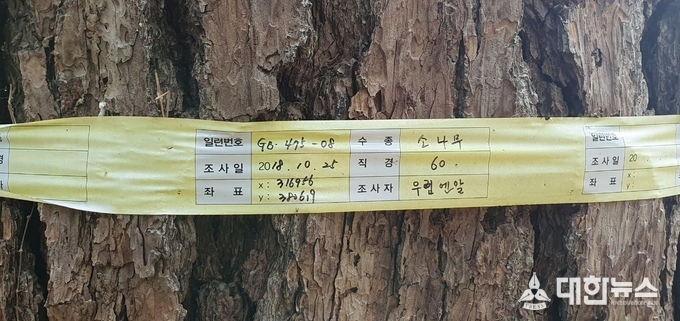 일련번호 GB-475-08 수종 소나무
경 조사일 2018.10.25 직경 60.
좌표 x: 316956 y: 380619 조사자 우림엔알
일련번호
조사일 20
좌표 x: y:
대한뉴스